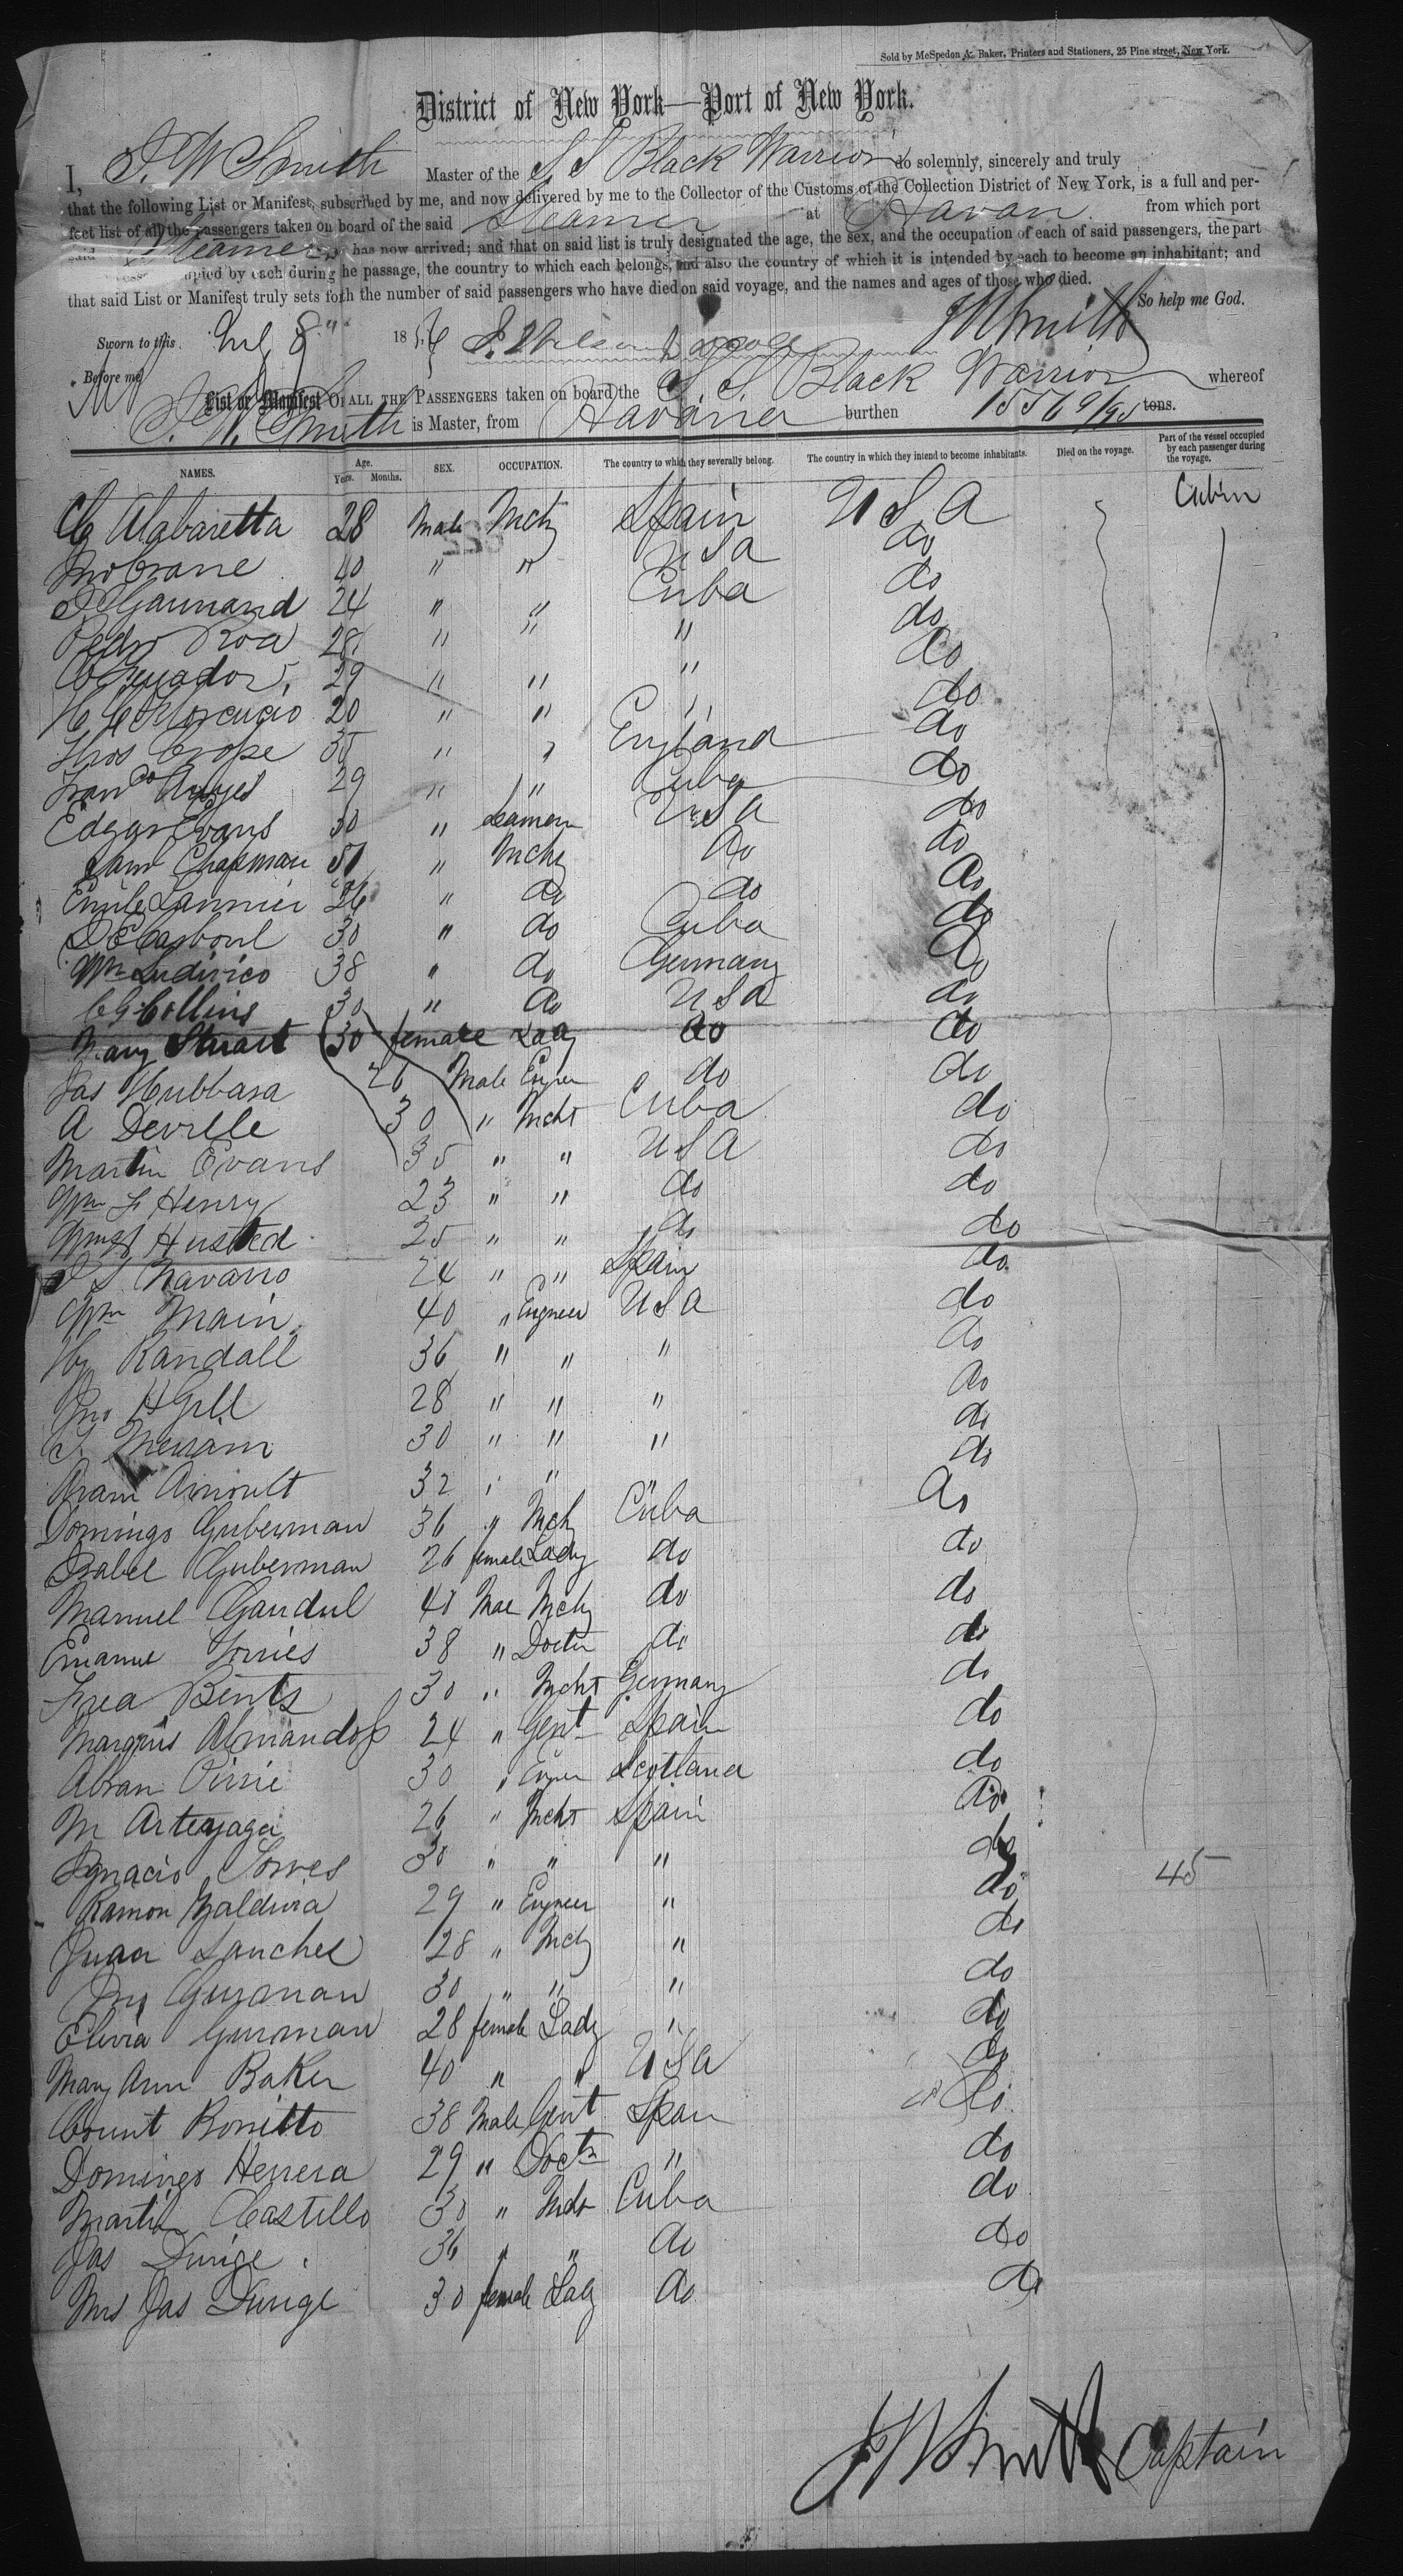 Sold by McSpedon & Baker, Printers and Stationers, 25 Pine street, New York.
District of New York—Port of New York.
I, J. W Smith Master of the S S Black Warrior do solemnly, sincerely and truly
that the following List or Manifest, subscribed by me, and now delivered by me to the Collector of the Customs of the Collection District of New York, is a full and per-
fect list of all the passengers taken on board of the said Steamer at Havan from which port
said Steamer has now arrived; and that on said list is truly designated the age, the sex, and the occupation of each of said passengers, the part
occupied by each during the passage, the country to which each belongs, and also the country of which it is intended by each to become an inhabitant; and
that said List or Manifest truly sets forth the number of said passengers who have died on said voyage, and the names and ages of those who died.
So help me God.
JW Smith
Sworn to this 8" 1856
Before me
List or Manifest OF ALL THE PASSENGERS taken on board the S. S. Black Warrior whereof
J. W. Smith is Master, from Havana burthen 1556 9/95 tons.
NAMES. Age. Years. Months. SEX. OCCUPATION. The country to which they severally belong. The country in which they intend to become inhabitants. Died on the voyage. Part of the vessel occupied by each passenger during the voyage.
Alabaretta 28 Male Mch Spain U S A Cabin
Jno Crane 40 " " U S A do
24 " " Cuba do
Pedro Roa 28 " " " do
29 " " " do
20 " " " do
Thos Crope 35 " " England do
29 " " Cuba do
Edgar Evans 30 " Seamen U S A do
Saml Chapman 51 " Mch do do
Emile Lannier 26 " do do do
30 " do Cuba do
Wm Ludivico 38 " do Germany do
C G Collins 30 " do U S A do
Mary Stuart 30 female Lady do do
Jas Hubbard 26 Male Engner do do
A Deville 30 " Mcht Cuba do
Martin Evans 35 " " U S A do
Wm F Henry 23 " " do do
Wm Husted 25 " " do do
J S Navarro 24 " " Spain do
Wm Main 40 " Engneer U S A do
Hy Randall 36 " " " do
Jno H Gill 28 " " " do
S. Merriam 30 " " " do
Aram Arnoult 32 " " " do
Domingo Guberman 36 " Mch Cuba do
Isabel Guberman 26 female Lady do do
Manuel Gandul 41 Male Mch do do
Emanuel Torries 38 " Doctor do do
Fred Bents 30 " Mcht Germany do
Marquis Almandos 24 " Gent Spain do
Abran Pirrie 30 " Engner Scotland do
M Arteyaga 26 " Mcht Spain do
Ignacio Torres 30 " " " do 45
Ramon Zaldivia 29 " Engneer " do
Juan Sanches 28 " Mch " do
Jno Gusman 30 " " " do
Elivia Gusman 28 female Lady " do
Mary Ann Baker 40 " " U S A do
Count Bonitto 38 Male Gent Span do
Domingo Herrera 29 " Doctr " do
Martin Castillo 30 " Mcht Cuba do
Jas Dunge 36 " " do do
Mrs Jas Dunge 30 female Lady do do
JW Smith Captain